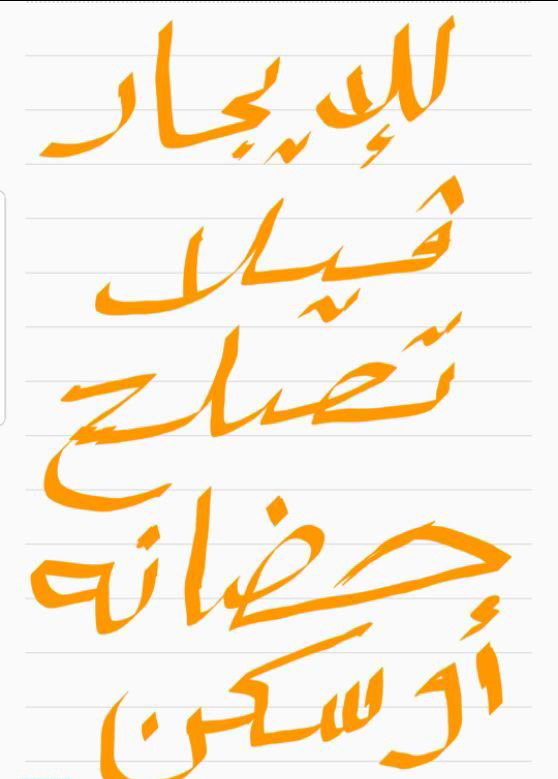 للإيجار
فيلا
تصلح
حضانه
أو سكن